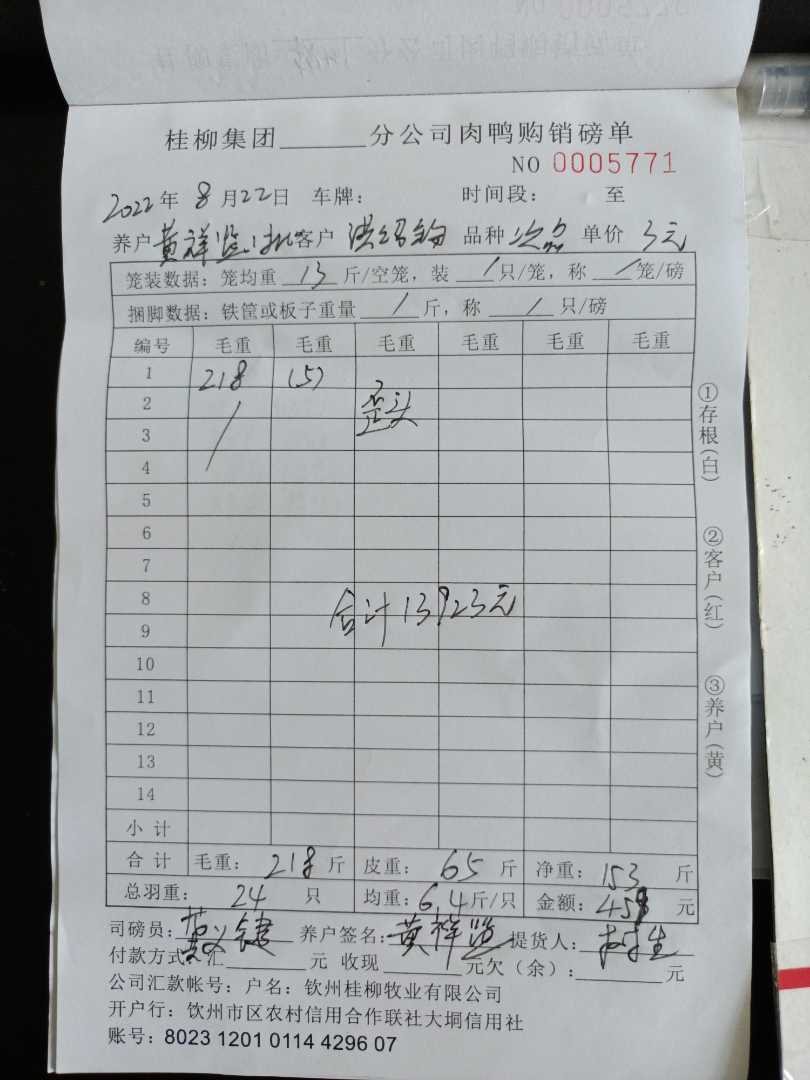 桂柳集团______分公司肉鸭购销磅单
NO 0005771
2022年8月22日 车牌： 时间段： 至
养户黄祥 客户洪绍钧 品种次品 单价3元
笼装数据：笼均重 13 斤/空笼，装 / 只/笼，称 / 笼/磅
捆脚数据：铁筐或板子重量 / 斤，称 / 只/磅
编号 毛重 毛重 毛重 毛重 毛重 毛重
1 218 (5)
2 / 歪头
3
4
5
6
7
8 合计13923元
9
10
11
12
13
14
小计
合计 毛重：218斤 皮重：65斤 净重：153斤
总羽重：24只 均重：6.4斤/只 金额：459元
司磅员： 养户签名：黄祥 提货人：
付款方式：汇______元 收现______元欠（余）：______元
公司汇款帐号：户名：钦州桂柳牧业有限公司
开户行：钦州市区农村信用合作联社大垌信用社
账号：8023 1201 0114 4296 07
①存根(白)
②客户(红)
③养户(黄)